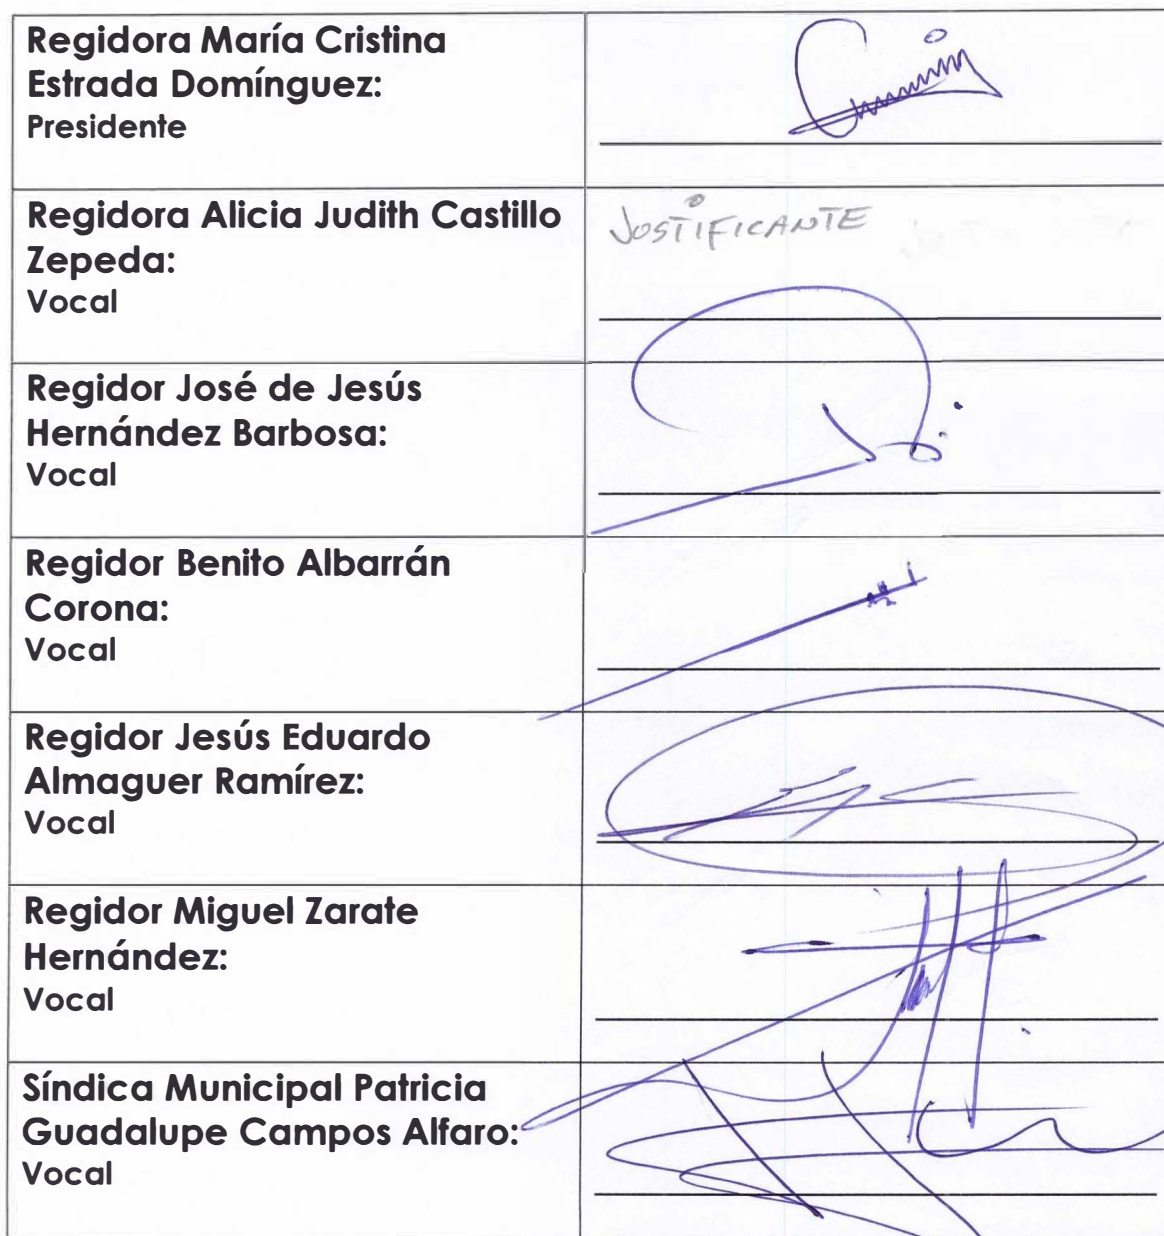 Regidora María Cristina
Estrada Domínguez:
Presidente
Regidora Alicia Judith Castillo
Zepeda:
Vocal
JUSTIFICANTE
Regidor José de Jesús
Hernández Barbosa:
Vocal
Regidor Benito Albarrán
Corona:
Vocal
Regidor Jesús Eduardo
Almaguer Ramírez:
Vocal
Regidor Miguel Zarate
Hernández:
Vocal
Síndica Municipal Patricia
Guadalupe Campos Alfaro:
Vocal